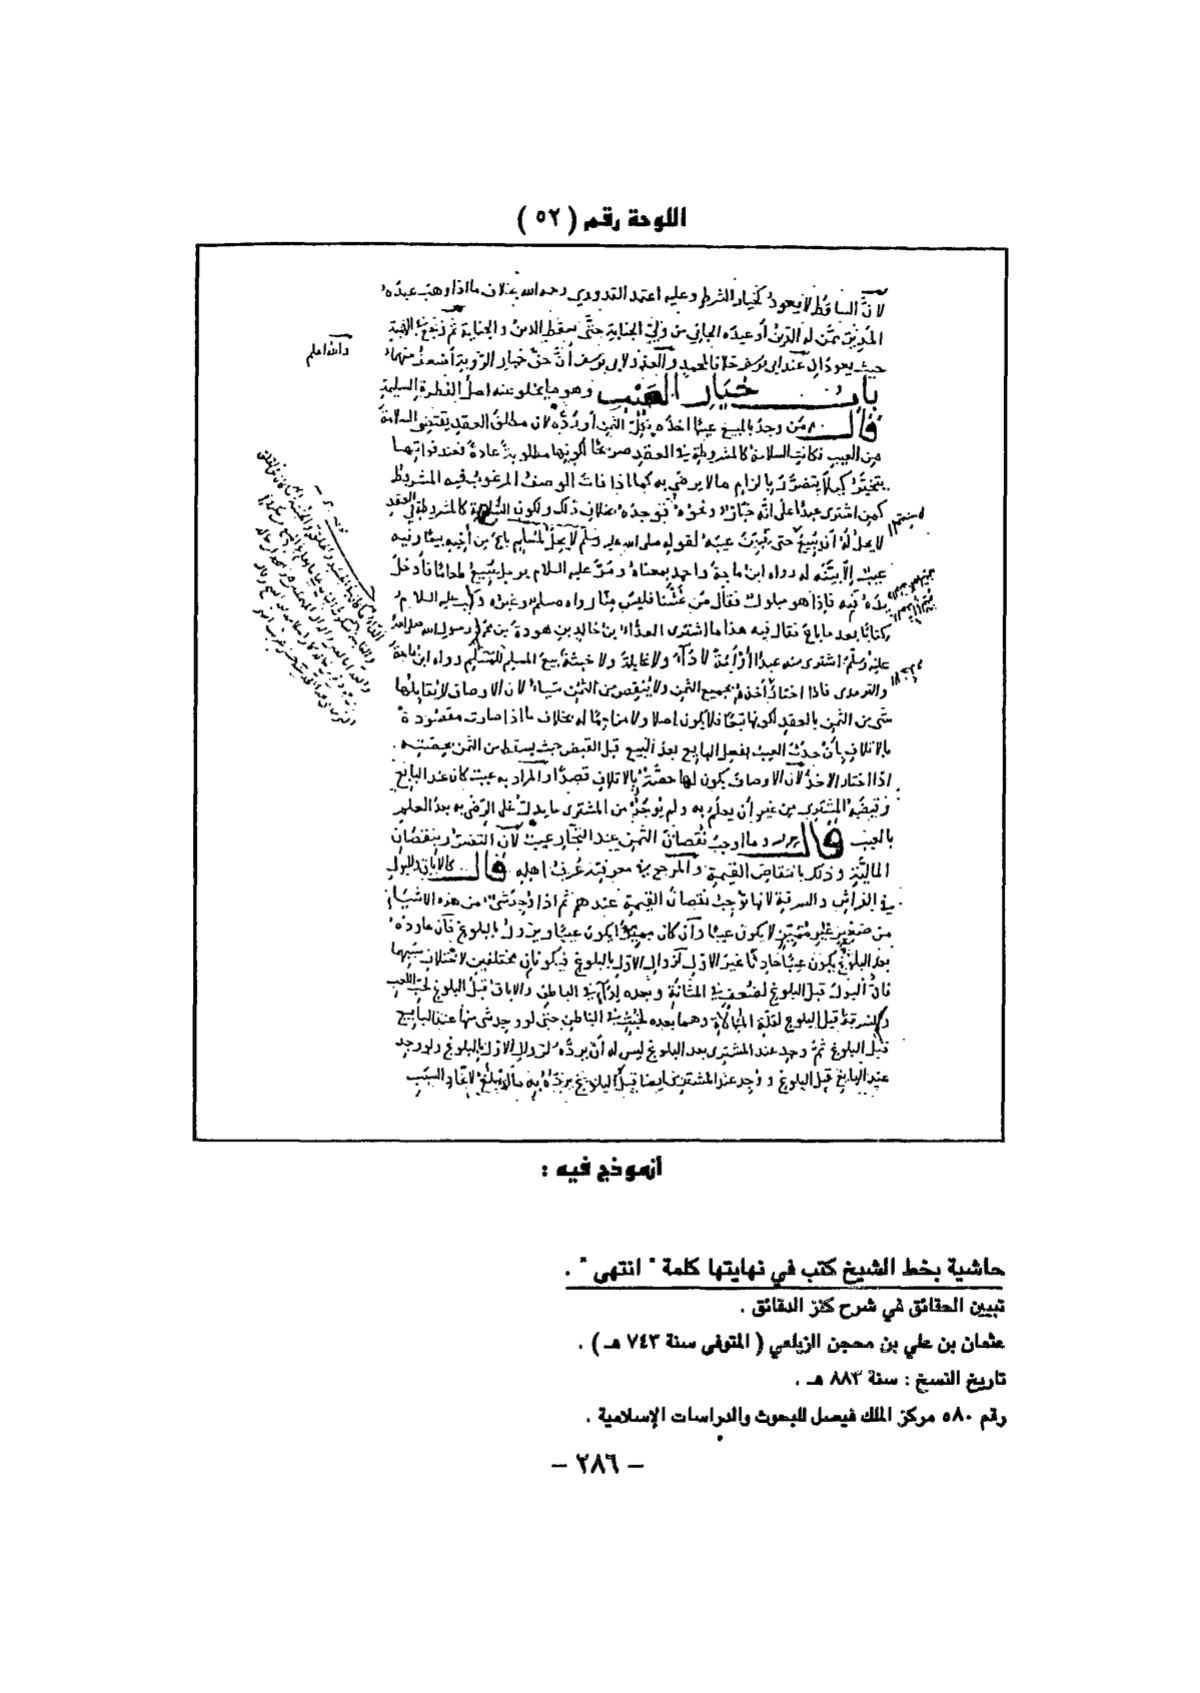 اللوحة رقم ( ٥٢ )
لان الساقط لا يعود كخيار الشرط وعليه اعتمد القدوري رحمه الله بخلاف ما اذا وهب عبده
المديون ممن له الدين أو عبده الجاني من ولي الجناية حتى يسقط الدين والجناية ثم رجع في الهبة
حيث يعودان عند ابي يوسف خلافا لمحمد والعذر لابي يوسف أن حق خيار الرؤية أضعف منهما
والله اعلم
باب خيار العيب وهو ما يخلو عنه اصل الفطرة السليمة
قال من وجد بالمبيع عيبا اخذه بكل الثمن أو رده لان مطلق العقد يقتضي السلامة
من العيب فكانت السلامة كالمشروطة في العقد صريحا لكونها مطلوبة عادة فعند فواتها
يتخير كيلا يتضرر بالزام ما لا يرضى به كما اذا فات الوصف المرغوب فيه المشروط
كمن اشترى عبدا على انه خباز ونحوه فوجده بخلاف ذلك ولكون السلامة كالمشروطة في العقد
لا يحل له أن يبيع حتى يبين عيبه لقوله صلى الله عليه وسلم لا يحل لمسلم باع من أخيه بيعا وفيه
عيب إلا بينه له رواه ابن ماجة واحمد بمعناه ومر عليه السلام برجل يبيع طعاما فأدخل
يده فيه فاذا هو مبلول فقال من غشنا فليس منا رواه مسلم وغيره وكتب عليه السلام
كتابا بعد ما باع فقال فيه هذا ما اشترى العداء بن خالد بن هودة من محمد رسول الله صلى الله
عليه وسلم اشترى منه عبدا أو أمة لا داء ولا غايلة ولا خبثة بيع المسلم للمسلم رواه ابن ماجة
والترمذي فاذا اختار أخذه بجميع الثمن ولا ينقص من الثمن شيا لان الاوصاف لا يقابلها
شي من الثمن بالعقد لكونها تبعا فلا يكون اصلا ولا مزاحما له بخلاف ما اذا صارت مقصودة
بالاتلاف بأن حدث العيب بفعل البايع بعد البيع قبل القبض حيث يسقط من الثمن بحصته
اذا اختار الاخذ لان الاوصاف يكون لها حصة بالاتلاف قصدا والمراد به عيب كان عند البايع
وقبضه المشتري من غير أن يعلم به ولم يوجد من المشتري ما يدل على الرضى به بعد العلم
بالعيب قال وما اوجب نقصان الثمن عند التجار عيب لان التضرر بنقصان
المالية وذلك بانتقاص القيمة والمرجع في معرفته عرف اهله قال كالاباق والبول
في الفراش والسرقة لانها توجب نقصان القيمة عندهم ثم اذا وجد شي من هذه الاشيا
من صغير غير مميز لا يكون عيبا وان كان مميزا يكون عيبا ويزول بالبلوغ فان عاوده
بعد البلوغ يكون عيبا حادثا غير الاول لزوال الاول بالبلوغ فيكونان مختلفين لاختلاف سببهما
فان البول قبل البلوغ لضعف في المثانة وبعده لداء في الباطن والاباق قبل البلوغ لحب اللعب
والسرقة قبل البلوغ لقلة المبالاة وهما بعده لخبث في الباطن حتى لو وجد شي منها عند البايع
قبل البلوغ ثم وجد عند المشتري بعد البلوغ ليس له أن يرده لزوال الاول بالبلوغ ولو وجد
عند البايع قبل البلوغ ووجد عند المشتري ايضا قبل البلوغ يرده به ما لم يبلغ لاتحاد السبب
أنموذج فيه :
حاشية بخط الشيخ كتب في نهايتها كلمة " انتهى " .
تبيين الحقائق في شرح كنز الدقائق .
عثمان بن علي بن محجن الزيلعي ( المتوفى سنة ٧٤٣ هـ ) .
تاريخ النسخ : سنة ٨٨٣ هـ .
رقم ٥٨٠ مركز الملك فيصل للبحوث والدراسات الإسلامية .
– ٢٨٦ –